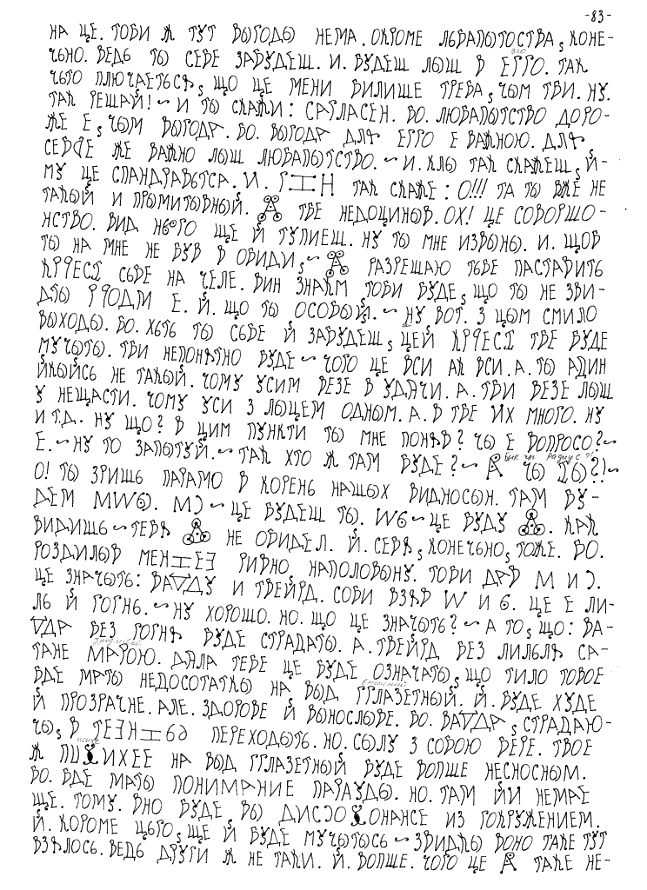 -83-
НА ЦЕ. ТОБИ Ж ТУТ ВЫГОДЫ НЕМА. ОКРОМЕ ЛЬБАПЫТСТВА, КОНЕ-
ЧЬНО. ВЕДЬ ТЫ СЕБЕ ЗАБУДЕШ. И. БУДЕШ ЛЫШ В ЕГГО. ТАК
ЧЬТО ПЛЮЧАЕТЬСЯ, ЩО ЦЕ МЕНИ БИЛИШЕ ТРЕБА, ЧЫМ ТБИ. НУ.
ТАК РЕШАЙ! ~ И ТЫ СКАЖИ: САГЛАСЕН. БО. ЛЮБАПЫТСТВО ДОРО-
ЖЕ Е, ЧЫМ ВЫГОДА. БО. ВЫГОДА ДЛЯ ЕГГО Е ВАЖНОЮ. ДЛЯ
СЕРДЕ ЖЕ ВАЖНО ЛЫШ ЛЮБАПЫТСТВО. ~ И. КЛЫ ТАК СКАЖЕШ, Й-
МУ ЦЕ СПАНДРАБЫТСА. И. ТАК СКАЖЕ: О!!! ТА ТЫ ВЖЕ НЕ
ТАКЫЙ И ПРЫМИТЫВНЫЙ. ТБЕ НЕДОЦИНЫВ. ОХ! ЦЕ СОВОРШО-
НСТВО. ВИД НЬОГО ЩЕ Й ТУПИЕШ. НУ ТЫ МНЕ ИЗВЫНЫ. И. ЩОБ
ТЫ НА МНЕ НЕ БУВ В ОБИДИ, ~ РАЗРЕШАЮ ТЬБЕ ПАСТАВИТЬ
СЬБЕ НА ЧЕЛЕ. ВИН ЗНАКЫМ ТОБИ БУДЕ, ЩО ТЫ НЕ ЗВИ-
ДТЫ РОДЫМ Е. Й. ЩО ТЫ ОСОБЫЙ. ~ НУ ВОТ. З ЦЫМ СМИЛО
ВЫХОДЫ. БО. ХЬТЬ ТЫ СЬБЕ Й ЗАБУДЕШ, ЦЕЙ ТБЕ БУДЕ
МУЧЫТЫ. ТБИ НЕПОНЯТНО БУДЕ ~ ЧОГО ЦЕ ВСИ АК ВСИ. А. ТЫ АДИН
ЙКЫЙСЬ НЕ ТАКЫЙ. ЧОМУ УСИМ ВЕЗЕ В УДАЧИ. А. ТБИ ВЕЗЕ ЛЫШ
У НЕЩАСТИ. ЧОМУ УСИ З ЛЫЦЕМ ОДНЫМ. А. В ТБЕ ИХ МНОГО. НУ
И Т.Д. НУ ЩО? В ЦИМ ПУНКТИ ТЫ МНЕ ПОНЯВ? ЧЫ Е ВОПРОСО? ~
Е. ~ НУ ТО ЗАПЫТУЙ. ~ ТАК ХТО Ж ТАМ БУДЕ? ~ ЧЫ ?! ~
О! ТЫ ЗРИШЬ ПАРАМО В КОРЕНЬ НАШЫХ ВИДНОСЫН. ТАМ БУ-
ДЕМ ~ ЦЕ БУДЕШ ТЫ. ~ ЦЕ БУДУ КАК
ВИДИШЬ ~ ТЕБЯ НЕ ОБИДЕЛ. Й. СЕБЯ, КОНЕЧЬНО, ТОЖЕ. БО.
РОЗДИЛЫВ РИВНО НАПОЛОВЫНУ. ТОБИ ДАВ М И
ЦЕ ЗНАЧЫТЬ: И ТВЕЙРД. СОБИ ВЗЯВ W И 6. ЦЕ Е ЛИ-
ЛЬ Й ГОГНЬ. ~ НУ ХОРОШО. НО. ЩО ЦЕ ЗНАЧЫТЬ? ~ А ТО, ЩО: ВА-
БЕЗ ГОГНЯ БУДЕ СТРАДАТЫ. А. ТВЕЙРД БЕЗ ЛИЛЬЛЯ СА-
ТАНЕ МАРОЮ. ДАЛА ТЕБЕ ЦЕ БУДЕ ОЗНАЧАТЫ, ЩО ТИЛО ТОВОЕ
БДЕ МАТЫ НЕДОСОТАТКЫ НА ВЫД ГГЛАЗЕТНЫЙ. Й. БУДЕ ХУДЕ
Й ПРОЗРАЧНЕ. АЛЕ. ЗДОРОВЕ Й ВЫНОСЛЫВЕ. БО. СТРАДАЮ-
ЧЫ, В ПЕРЕХОДЫТЬ. НО. СЫЛУ З СОБОЮ БЕРЕ. ТВОЕ
Ж НА ВЫД ГГЛАЗЕТНЫЙ БУДЕ ВОПШЕ НЕСНОСНЫМ.
БО. БДЕ МАТЫ ПОНИМАНИЕ ПАРАУДЫ. НО. ТАМ ЙИ НЕМАЕ
ЩЕ. ТОМУ. ВНО БУДЕ, БЫ ИЗ ГОКРУЖЕНИЕМ.
Й. КОРОМЕ ЦЬГО, ЩЕ Й БУДЕ МУЧЫТЫСЬ ~ ЗВИДКЫ ВОНО ТАКЕ ТУТ
ВЗЯЛОСЬ. ВЕДЬ ДРУГИ Ж НЕ ТАКИ. Й. ВОПШЕ. ЧОГО ЦЕ ТАКЕ НЕ-